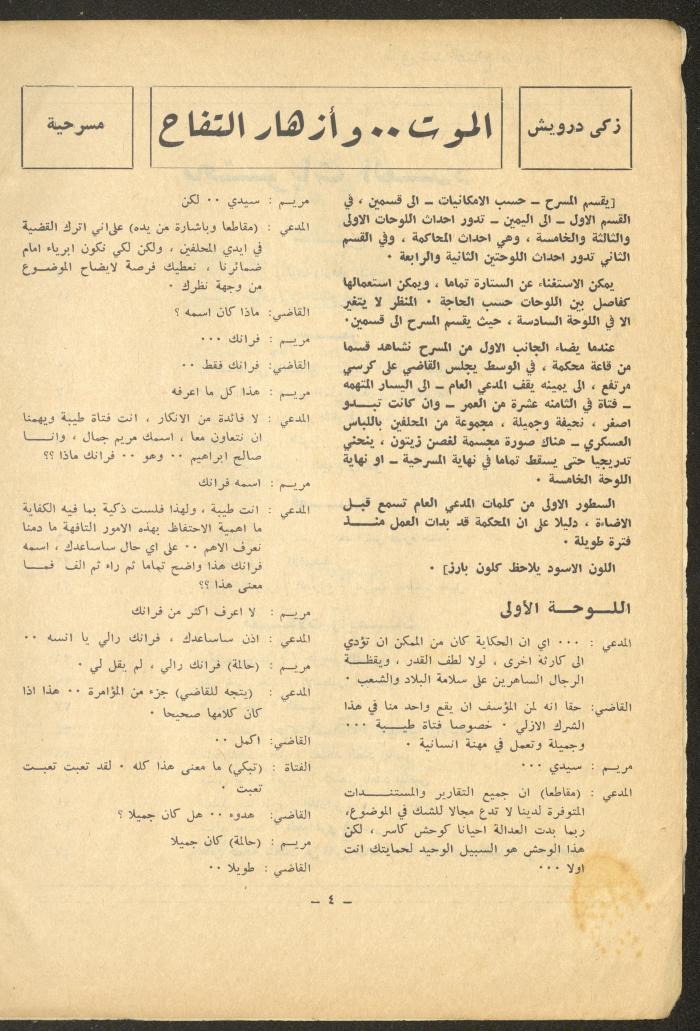 زكى درويش
الموت ٠٠ وأزهار التفاح
مسرحية
[يقسم المسرح ــ حسب الامكانيات ــ الى قسمين ، في
القسم الاول ــ الى اليمين ــ تدور احداث اللوحات الاولى
والثالثة والخامسة ، وهي احداث المحاكمة ، وفي القسم
الثاني تدور احداث اللوحتين الثانية والرابعة ٠
يمكن الاستغناء عن الستارة تماما ، ويمكن استعمالها
كفاصل بين اللوحات حسب الحاجة ٠ المنظر لا يتغير
الا في اللوحة السادسة ، حيث يقسم المسرح الى قسمين٠
عندما يضاء الجانب الاول من المسرح نشاهد قسما
من قاعة محكمة ، في الوسط يجلس القاضي على كرسي
مرتفع ، الى يمينه يقف المدعي العام ــ الى اليسار المتهمه
ــ فتاة في الثامنه عشرة من العمر ــ وان كانت تبــدو
اصغر ، نحيفة وجميلة ، مجموعة من المحلفين باللباس
العسكري ــ هناك صورة مجسمة لغصن زيتون ، ينحني
تدريجيا حتى يسقط تماما في نهاية المسرحية ــ او نهاية
اللوحة الخامسة ٠
السطور الاولى من كلمات المدعي العام تسمع قبـل
الاضاءة ، دليلا على ان المحكمة قد بدات العمل منــذ
فترة طويلة ٠
اللون الاسود يلاحظ كلون بارز] ٠
اللــوحــة الأولى
المدعي : ٠٠٠ اي ان الحكاية كان من الممكن ان تؤدي
الى كارثة اخرى ، لولا لطف القدر ، ويقظــة
الرجال الساهرين على سلامة البلاد والشعب ٠
القاضي: حقا انه لمن المؤسف ان يقع واحد منا في هذا
الشرك الازلي ٠ خصوصا فتاة طيبــة ٠٠٠
وجميلة وتعمل في مهنة انسانية ٠
مريــم : سيدي ٠٠٠
المدعي : (مقاطعا) ان جميع التقارير والمستنــدات
المتوفرة لدينا لا تدع مجالا للشك في الموضوع،
ربما بدت العدالة احيانا كوحش كاسر ، لكن
هذا الوحش هو السبيل الوحيد لحمايتك انت
اولا ٠٠٠
مريــم : سيدي ٠٠ لكن
المدعي : (مقاطعا وباشارة من يده) على‌اني اترك القضية
في ايدي المحلفين ، ولكن لكي نكون ابرياء امام
ضمائرنا ، نعطيك فرصة لايضاح الموضــوع
من وجهة نظرك ٠
القاضي: ماذا كان اسمه ؟
مريــم : فرانك ٠٠٠
القاضي: فرانك فقط ٠٠
مريــم : هذا كل ما اعرفه
المدعي : لا فائدة من الانكار ، انت فتاة طيبة ويهمنا
ان نتعاون معا ، اسمك مريم جمال ، وانــا
صالح ابراهيم ٠٠ وهو ٠٠ فرانك ماذا ؟؟
مريــم : اسمه فرانك
المدعي : انت طيبة ، ولهذا فلست ذكية بما فيه الكفاية
ما اهمية الاحتفاظ بهذه الامور التافهة ما دمنا
نعرف الاهم ٠٠ على اي حال ساساعدك ، اسمه
فرانك هذا واضح تماما ثم راء ثم الف فمــا
معنى هذا ؟؟
مريــم : لا اعرف اكثر من فرانك
المدعي : اذن ساساعدك ، فرانك رالي يا انسه ٠٠
مريــم : (حالمة) فرانك رالي ، لم يقل لي ٠
المدعي : (يتجه للقاضي) جزء من المؤامرة ٠٠ هذا اذا
كان كلامها صحيحا ٠
القاضي: اكمل ٠٠
الفتاة : (تبكي) ما معنى هذا كله ٠ لقد تعبت تعبـت
تعبت ٠
القاضي: هدوء ٠٠ هل كان جميلا ؟
مريــم : (حالمة) كان جميلا
القاضي : طويلا ٠٠
ــ ٤ ــ